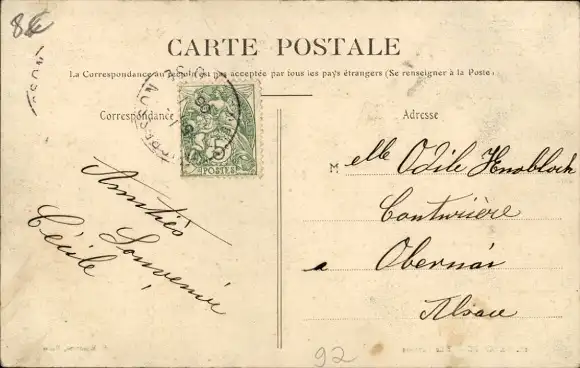 8
CARTE POSTALE
La Correspondance au recto n'est pas acceptée par tous les pays étrangers (Se renseigner à la Poste)
Correspondance
Adresse
5
POSTES
Amitiés
Souvenir
Cécile
Melle Odile Knobloch
Couturière
a Obernai
Alsace
92